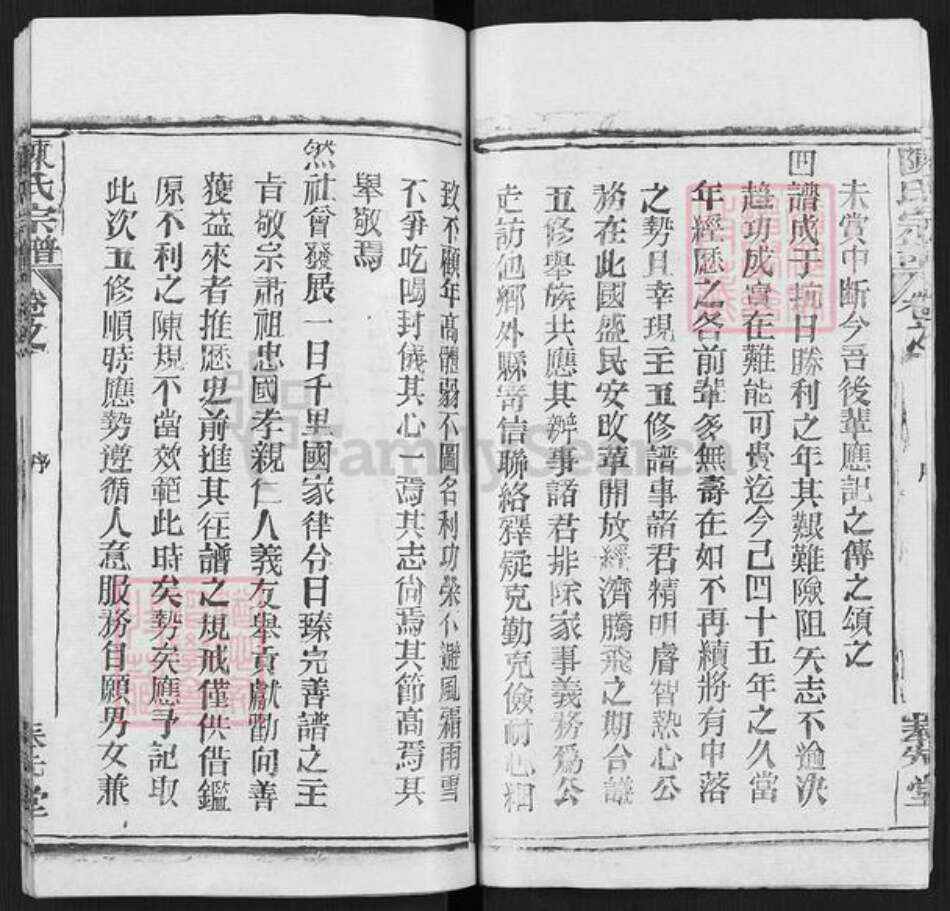 陳氏宗譜 卷之 序 奉先堂
未嘗中断今吾後輩應記之傳之頌之
四譜成于抗日勝利之年其艱難險阻矢志不逾決
趋功成實在難能可贵迄今已四十五年之久當
年經歷之各前輩多無壽在如不再續將有中落
之勢且幸現主五修譜事諸君精明膚智熱心公
務在此國盛民安改革開放經濟騰飛之期合議
五修舉族共應其辦事諸君排除家事義務為公
走訪他鄉外縣寄信聯絡釋疑克勤克儉耐心細
致不顧年高體弱不圖名利功榮不避風霜雨雪
不爭吃喝封儀其心一焉其志尚焉其節高焉其
舉敬焉
然社會發展一日千里國家律令日臻完善譜之主
旨敬宗肅祖忠國孝親仁人義友舉貢獻勸向善
獲益來者推歷史前進其往譜之規戒僅供借鑑
原不利之陳規不當效範此時矣勢矣應予記取
此次五修順時應勢遵循人意服務自願男女兼
陳氏宗譜 卷之 序 奉先堂
FamilySearch